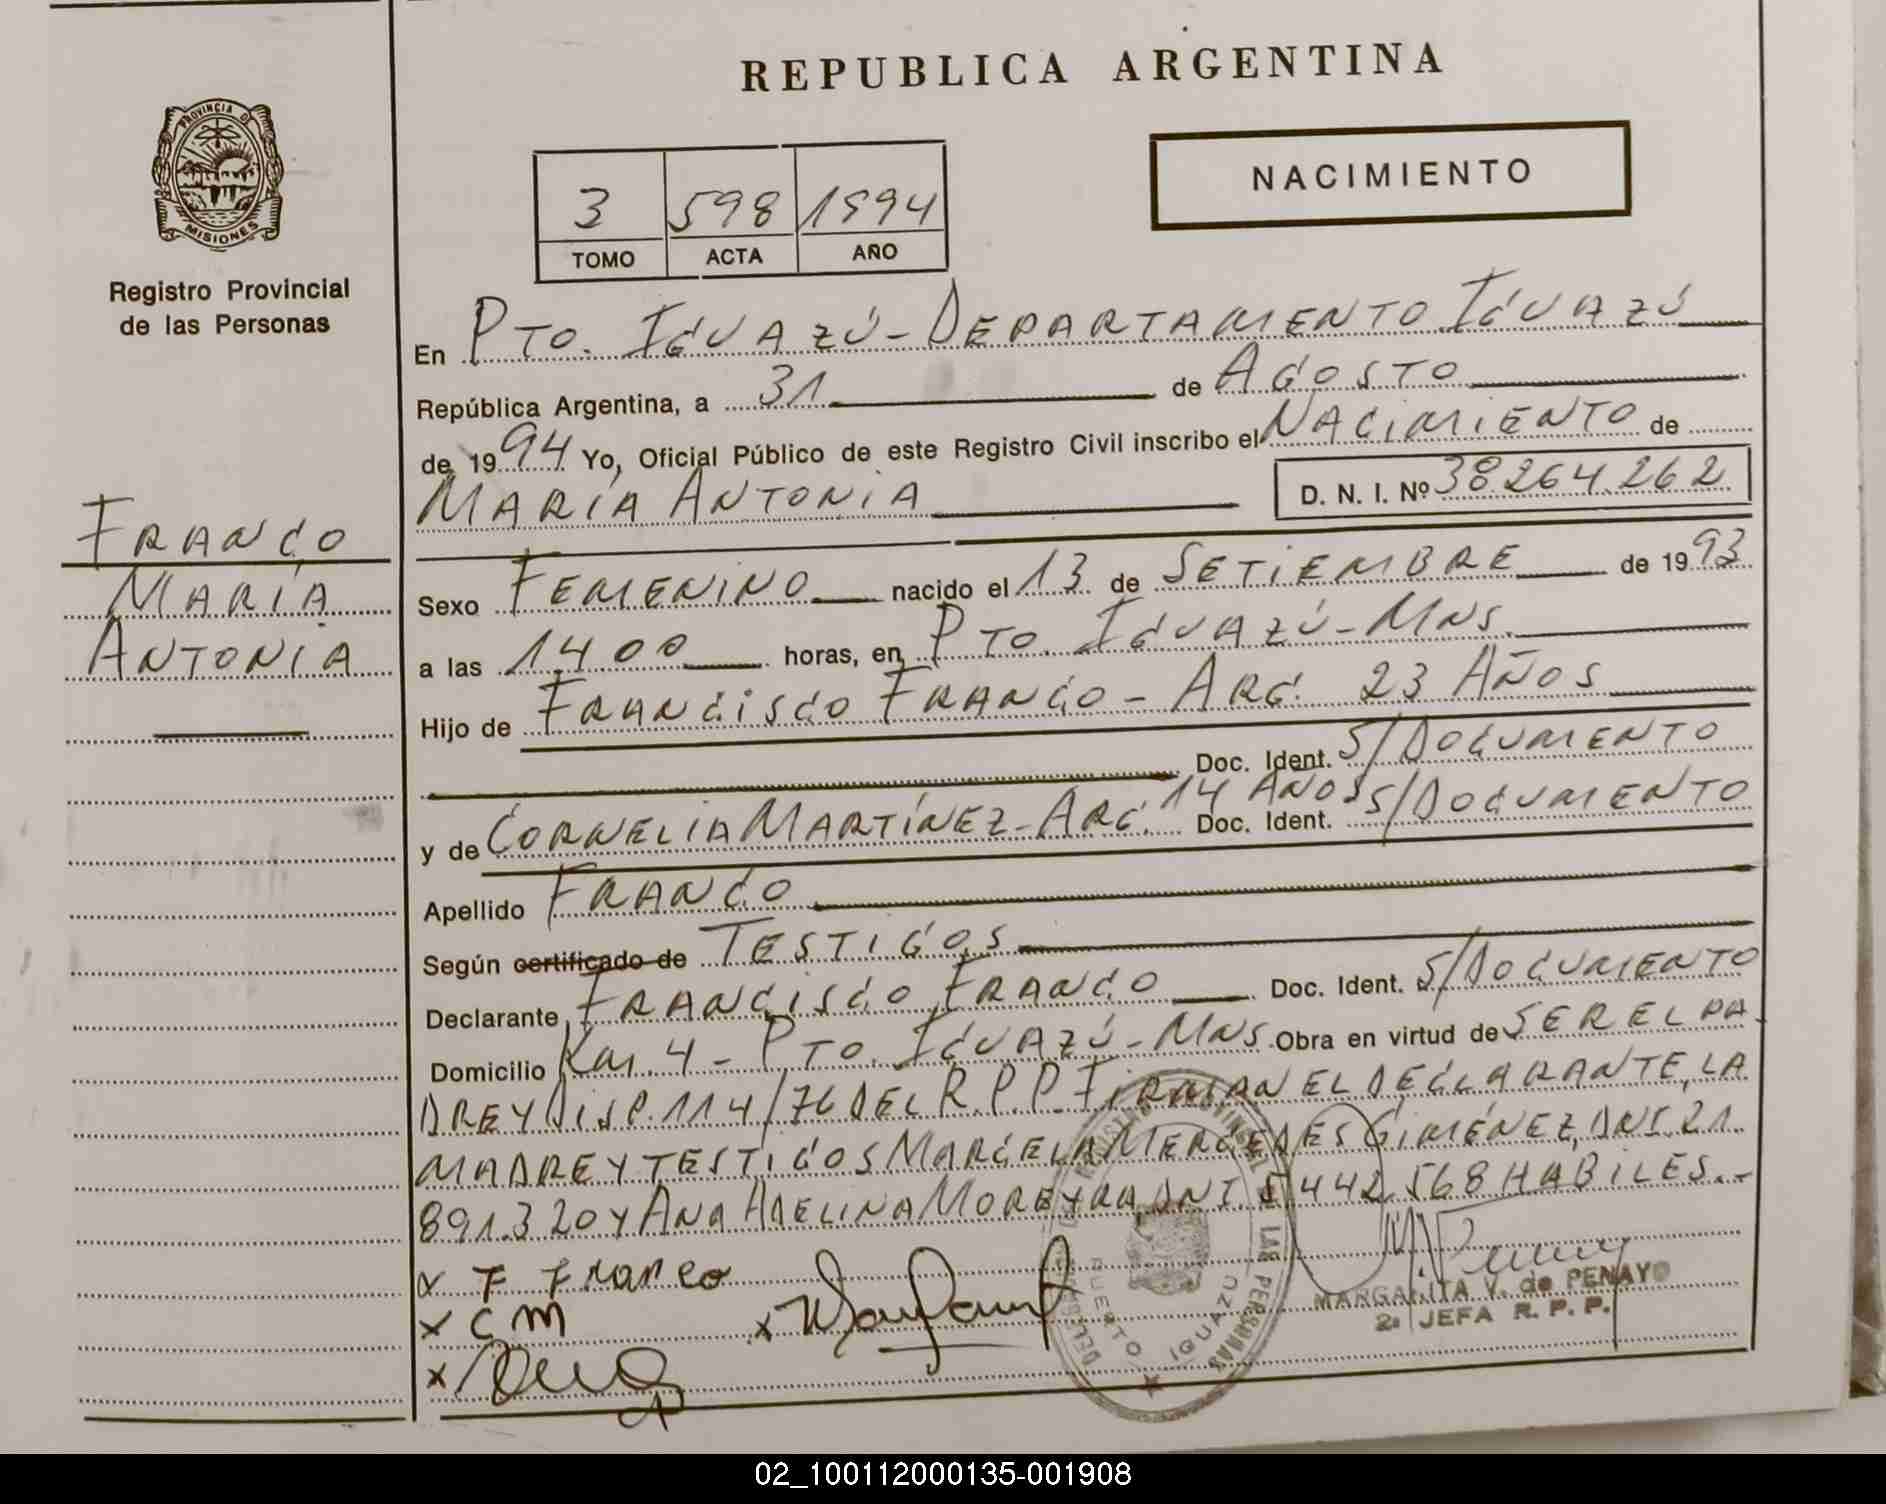 REPUBLICA ARGENTINA
PROVINCIA D
MISIONES
Registro Provincial
de las Personas
3 598 1994
TOMO ACTA AÑO
NACIMIENTO
En PTO. IGUAZÚ - DEPARTAMENTO IGUAZÚ
República Argentina, a 31 de AGOSTO
de 1994 Yo, Oficial Público de este Registro Civil inscribo el NACIMIENTO de
MARÍA ANTONIA D. N. I. Nº 38.264.262
FRANCO
MARÍA
ANTONIA
Sexo FEMENINO nacido el 13 de SETIEMBRE de 1993
a las 14 00 horas, en PTO. IGUAZÚ - MNS.
Hijo de FRANCISCO FRANCO - ARG. 23 AÑOS
Doc. Ident. S/DOCUMENTO
y de CORNELIA MARTÍNEZ - ARG. 14 AÑOS Doc. Ident. S/DOCUMENTO
Apellido FRANCO
Según certificado de TESTIGOS
Declarante FRANCISCO FRANCO Doc. Ident. S/DOCUMENTO
Domicilio KM. 4 - PTO. IGUAZÚ - MNS Obra en virtud de SER EL PA
DRE Y DISP. 114/76 DEL R.P.P. FIRMAN EL DECLARANTE, LA
MADRE Y TESTIGOS MARCELA MERCEDES GIMÉNEZ, DNI. 21.
891.320 Y ANA ADELINA MOREYRA, DNI. 5.442.568 HABILES.-
x F Franco
x C M
x
x
MARGARITA V. de PENAYO
2a JEFA R. P. P.
PUERTO IGUAZU
02_100112000135-001908